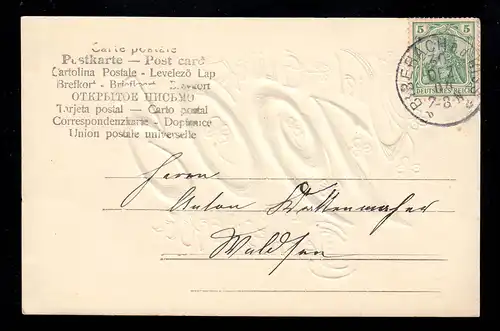 Carte postale
Postkarte — Post card
Cartolina Postale - Levelező Lap
Brefkort - Briefkaart
ОТКРЫТОЕ ПИСЬМО
Tarjeta postal — Carto postal
Correspondenzkarte - Dopisnice
Union postale universelle
5 5
DEUTSCHES REICH
7-8
Herrn
Anton
Waldsee